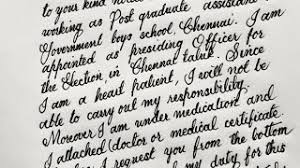 to your kind n
working as Post graduate assistant
Government boys school, Chennai. I am
appointed as presiding Officer for
the Election in Chennai taluk. Since
I am a heart patient, I will not be
able to carry out my responsibility.
Moreover I am under medication and
I attached (doctor or medical certificate
I request you from the bottom
my duty for this